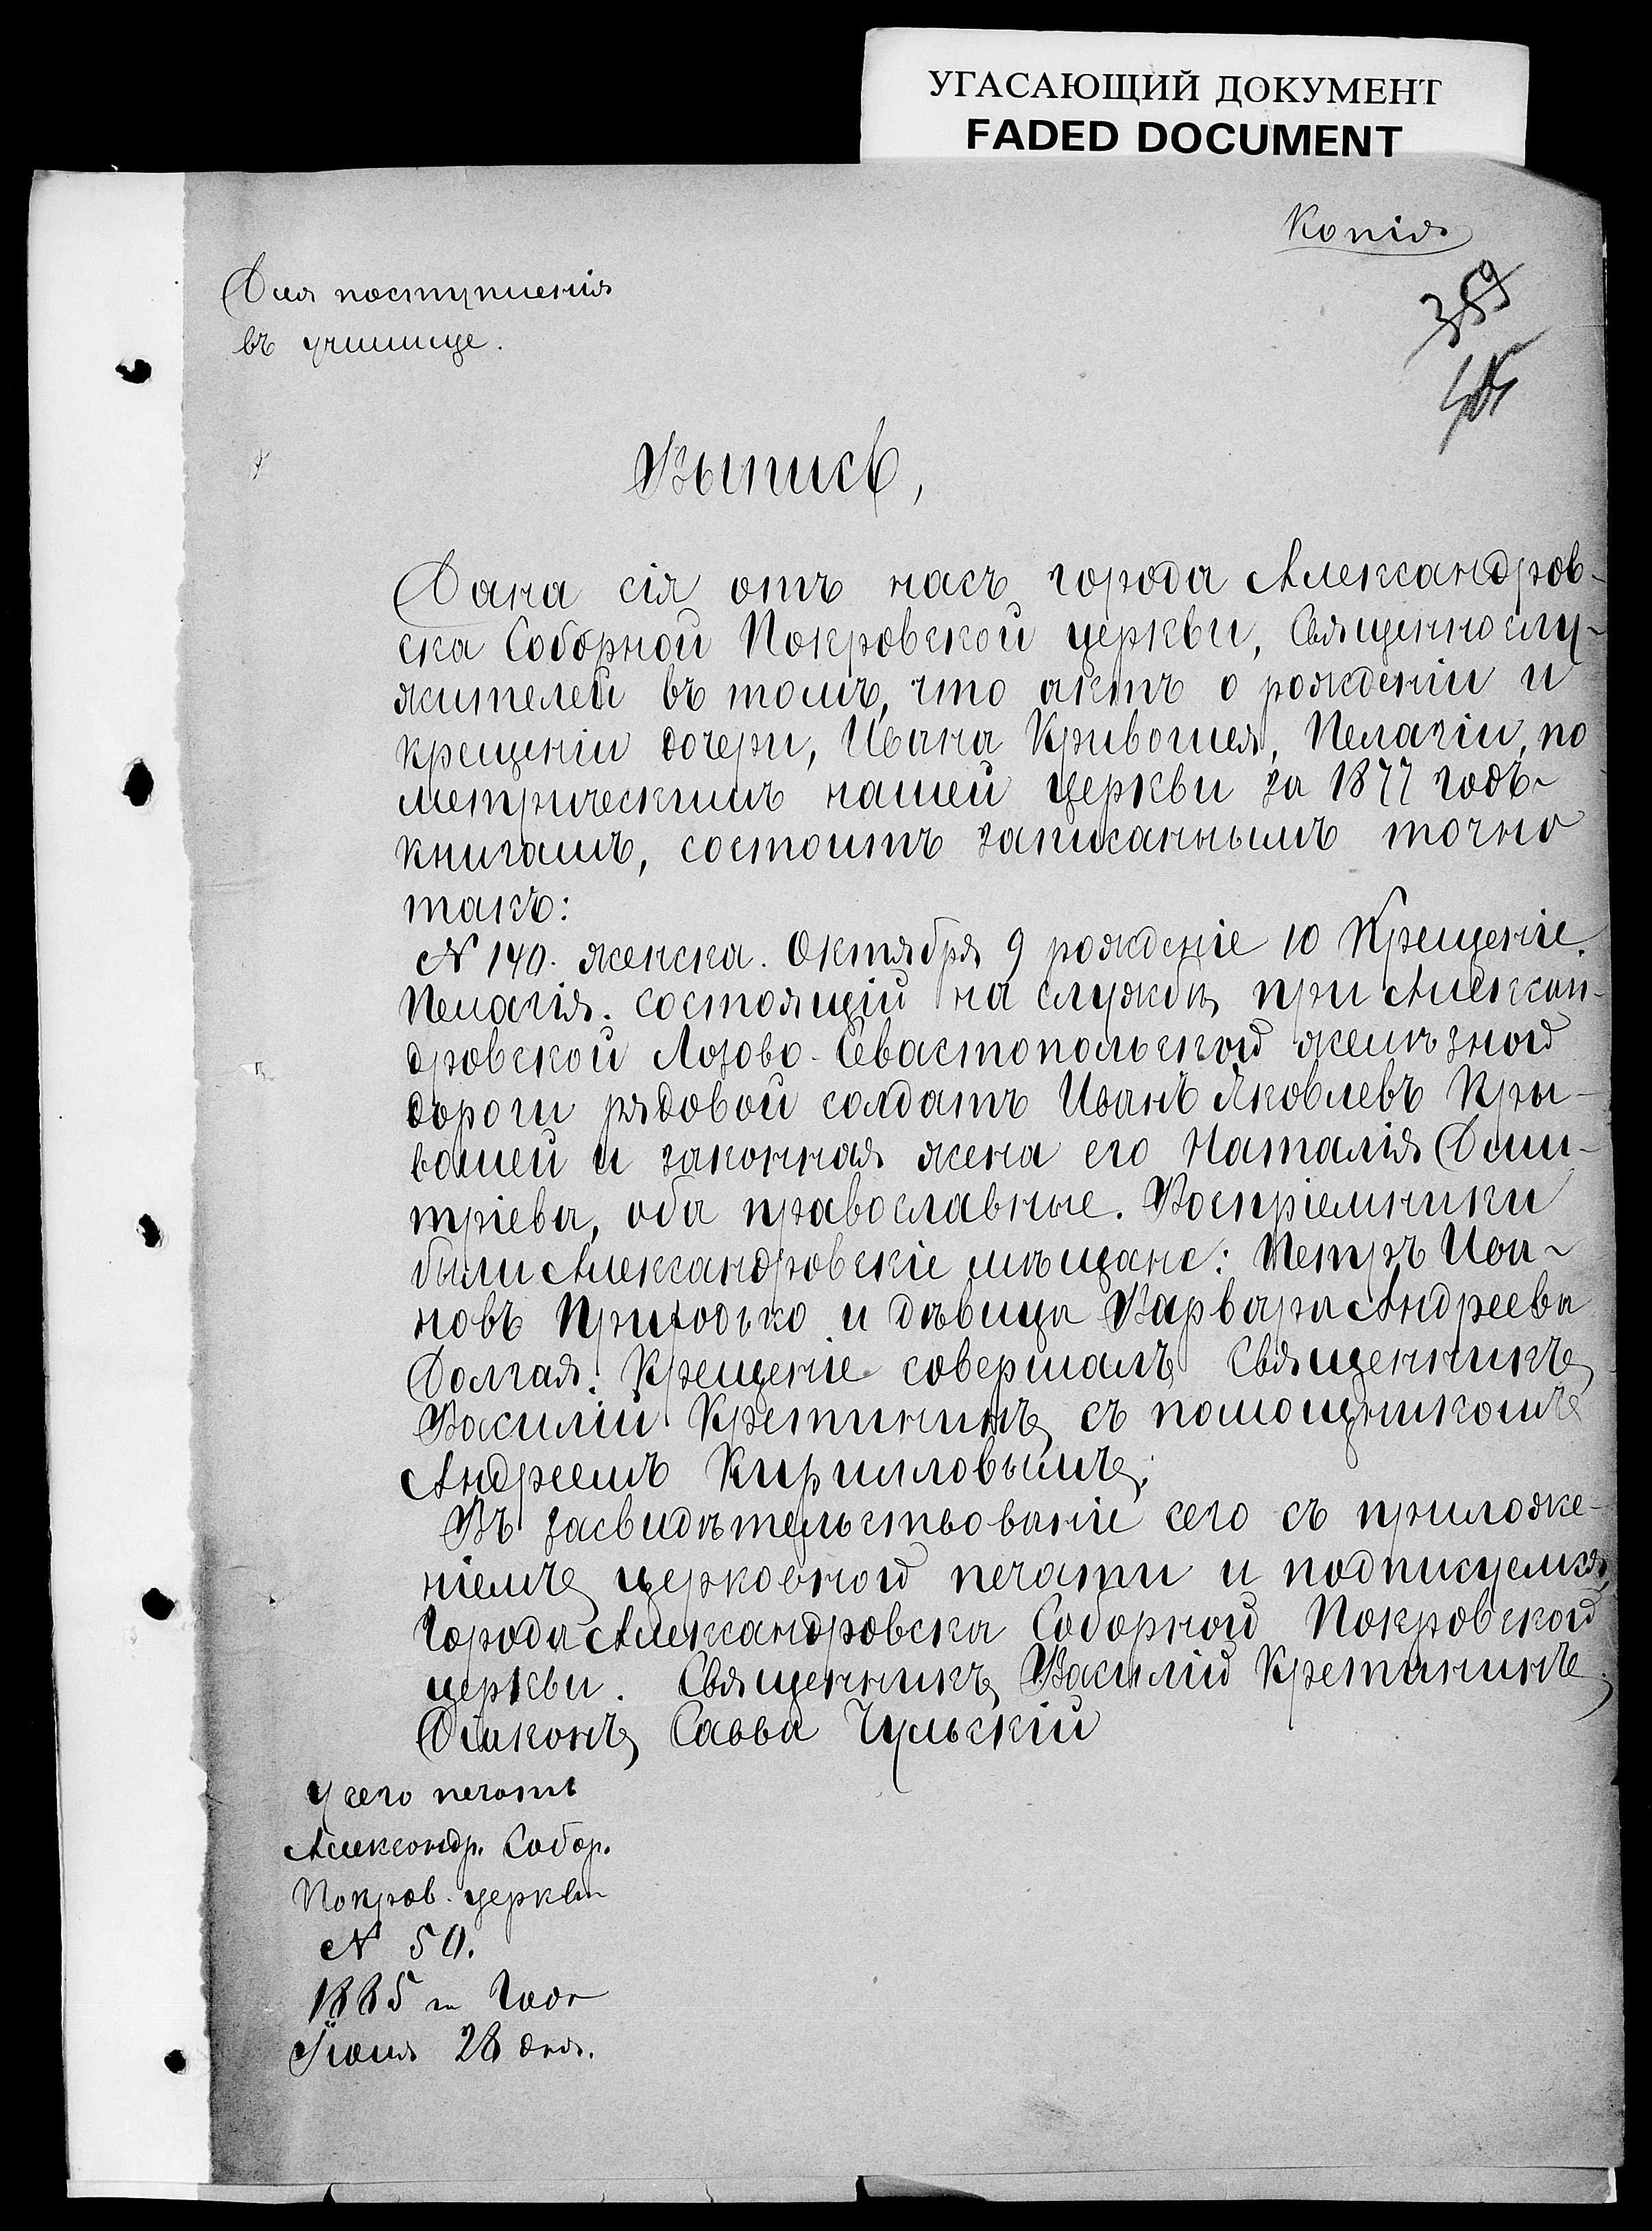 УГАСАЮЩИЙ ДОКУМЕНТ
FADED DOCUMENT
Копія
Для поступленія
въ училище.
359
Выпись,
Дана сія отъ насъ города Александров-
ска Соборной Покровской церкви, Священнослу-
жителей въ томъ, что актъ о рожденіи и
крещеніи дочери, Ивана Кривошея, Пелагіи, по
метрическимъ нашей церкви за 1877 годъ
книгамъ, состоитъ записаннымъ точно
такъ:
№ 140. женска. Октября 9 рожденіе 10 Крещеніе.
Пелагія. состоящій на службѣ при Алексан-
дровской Лозово-Севастопольской желѣзной
дороги рядовой солдатъ Иванъ Яковлевъ Кры-
вошей и законная жена его Наталія Дми-
тріева, оба православные. Воспріемники
были Александровскіе мѣщане: Петръ Ива-
новъ Приходько и дѣвица Варвара Андреева
Долгая. Крещеніе совершалъ Священникъ
Василій Кретининъ съ помощникомъ
Андреемъ Кирилловымъ.
Въ засвидѣтельствованіе сего съ приложе-
ніемъ церковной печати и подписуемся
Города Александровска Соборной Покровской
церкви. Священникъ Василій Кретининъ.
Діаконъ Савва Чульскій
У сего печать
Александр. Собор.
Покров. церкви
№ 50.
1885 го года
Іюня 28 дня.